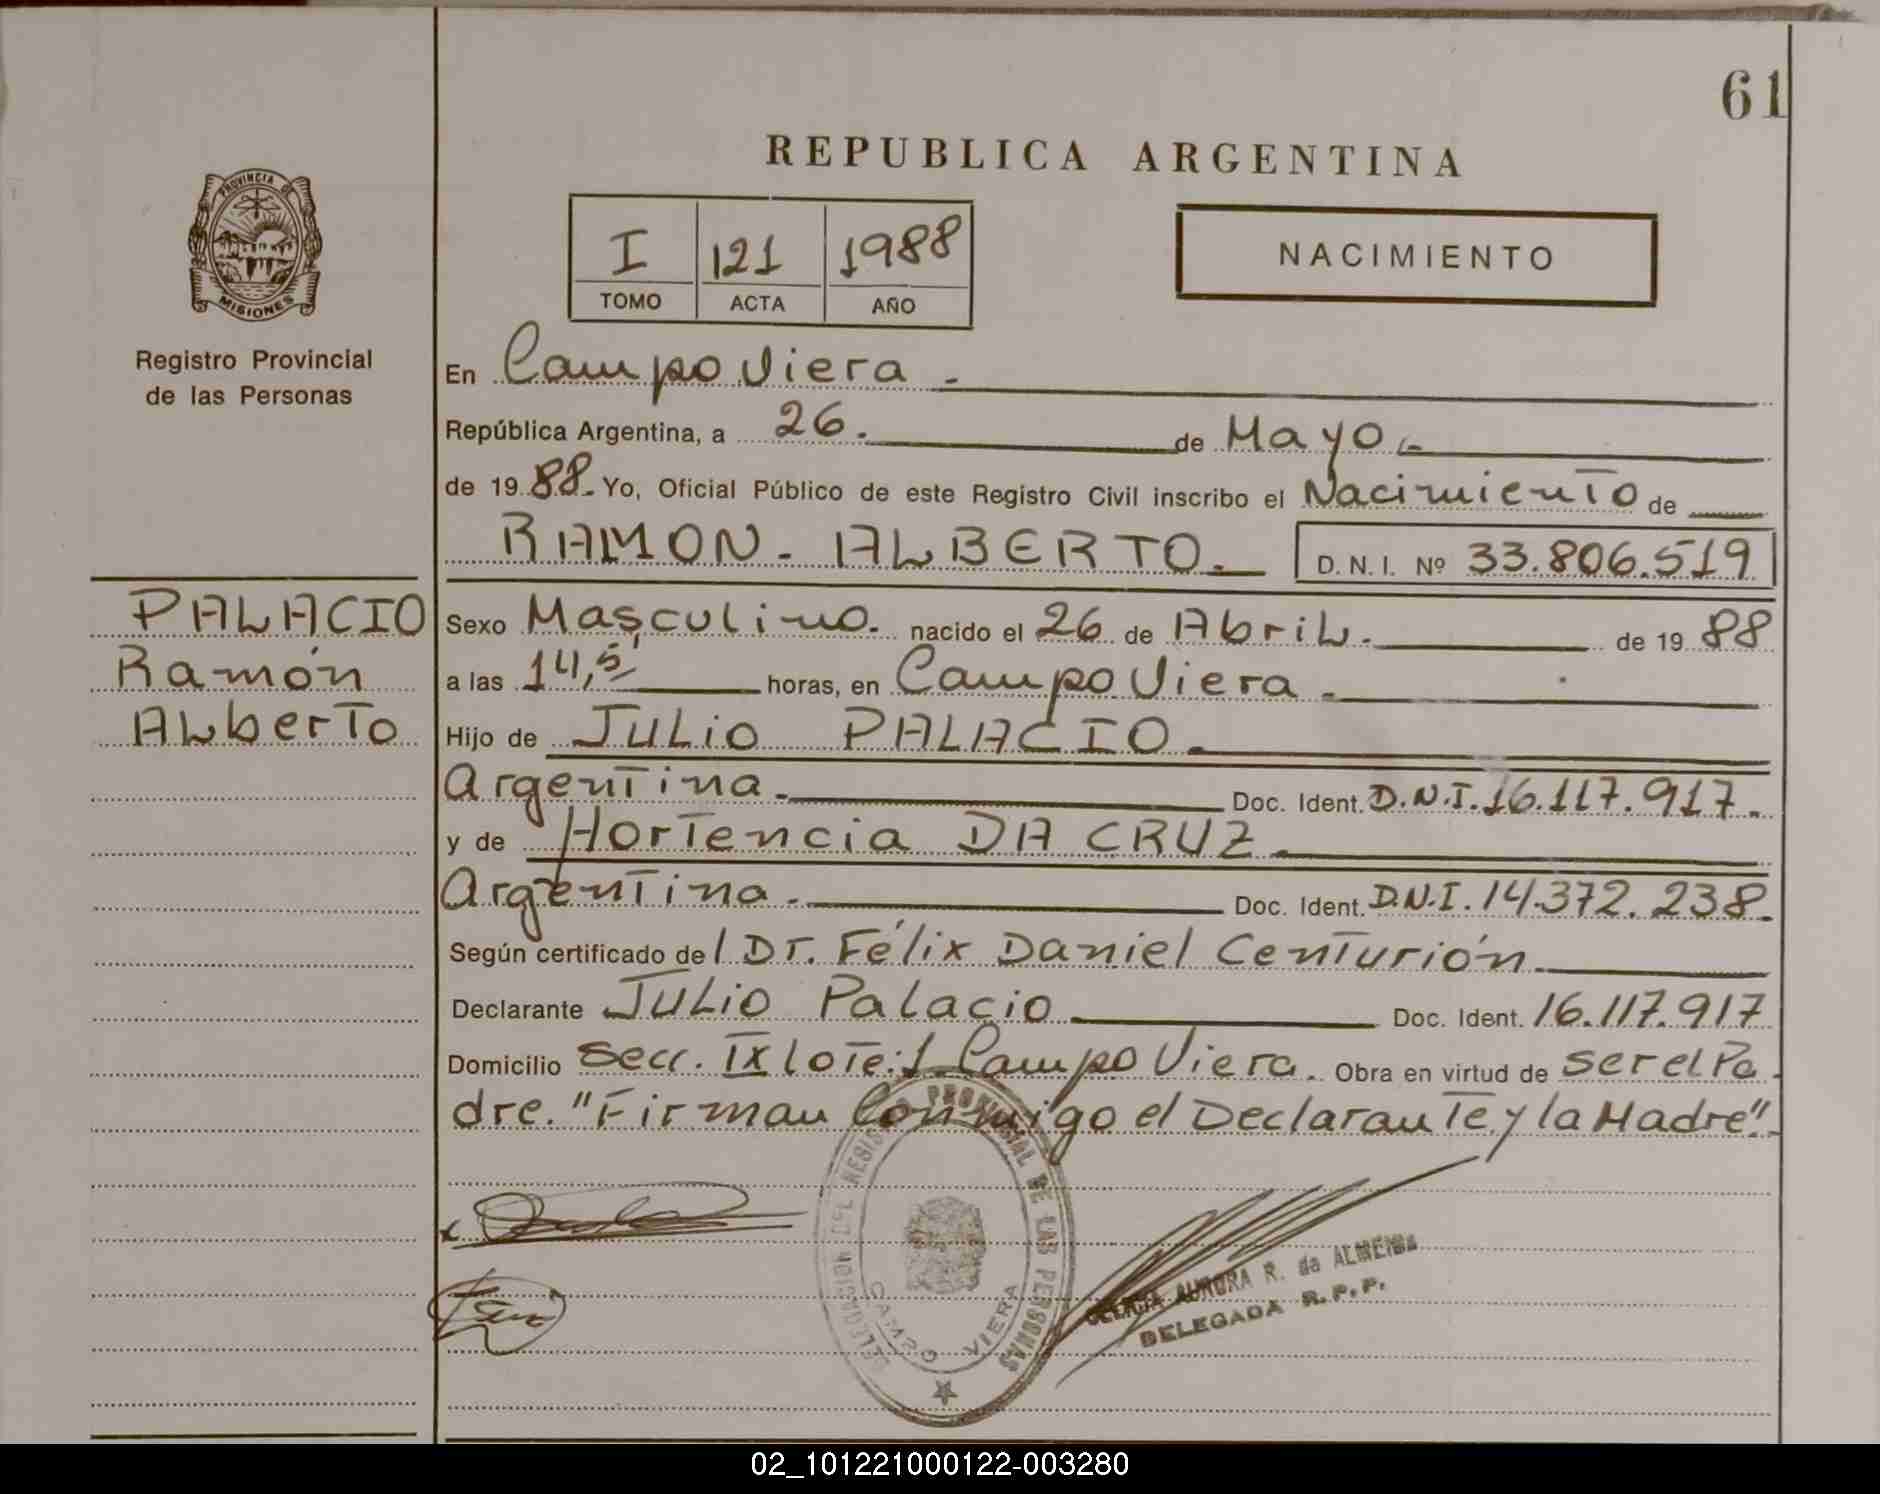 61
REPUBLICA ARGENTINA
PROVINCIA DE
MISIONES
Registro Provincial
de las Personas
I 121 1988
TOMO ACTA AÑO
NACIMIENTO
En Campo Viera.
República Argentina, a 26. de Mayo.
de 1988. Yo, Oficial Público de este Registro Civil inscribo el Nacimiento de
RAMON - ALBERTO. D. N. I. Nº 33.806.519
PALACIO
Ramón
Alberto
Sexo Masculino. nacido el 26 de Abril. de 19 88
a las 14,5' horas, en Campo Viera.
Hijo de JULIO PALACIO.
Argentina. Doc. Ident. D.N.I. 16.117.917.
y de Hortencia DA CRUZ.
Argentina. Doc. Ident. D.N.I. 14.372.238.
Según certificado del Dr. Félix Daniel Centurión
Declarante Julio Palacio Doc. Ident. 16.117.917
Domicilio Secc. IX lote: 1 Campo Viera. Obra en virtud de ser el Pa
dre. "Firman Conmigo el Declarante y la Madre".
DELEGACION DEL REGISTRO PROVINCIAL DE LAS PERSONAS
CAMPO VIERA
AURORA R. de ALMEIDA
DELEGADA R.P.P.
02_101221000122-003280